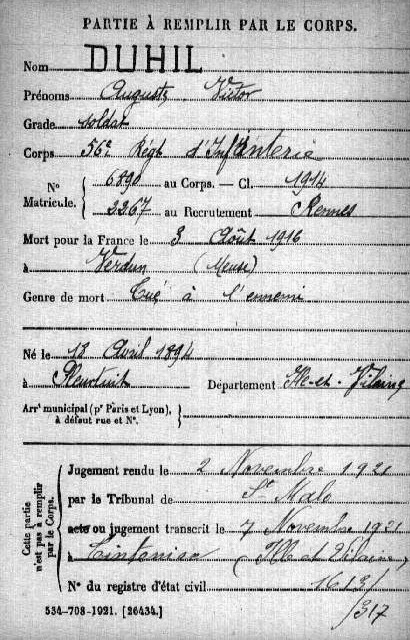 PARTIE À REMPLIR PAR LE CORPS.
Nom DUHIL
Prénoms Auguste, Victor
Grade soldat
Corps 56e Régt d'Infanterie
N° Matricule. { 6890 au Corps. — Cl. 1914
2267 au Recrutement Rennes
Mort pour la France le 3 Août 1916
à Verdun (Meuse)
Genre de mort Tué à l'ennemi
Né le 13 Avril 1894
à Pleurtuit Département Ille-et-Vilaine
Arrt municipal (pr Paris et Lyon), à défaut rue et N°. }
Cette partie n'est pas à remplir par le Corps.
Jugement rendu le 2 Novembre 1921
par le Tribunal de St Malo
acte ou jugement transcrit le 7 Novembre 1921
à (Ille et Vilaine)
N° du registre d'état civil 1613/
/317
534-708-1921. [26434.]